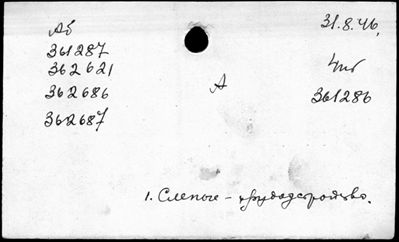 Аб
31.8.46.
361287
362621
Чит
362686
А
361286
362687
1. Слепые - трудоустройство.